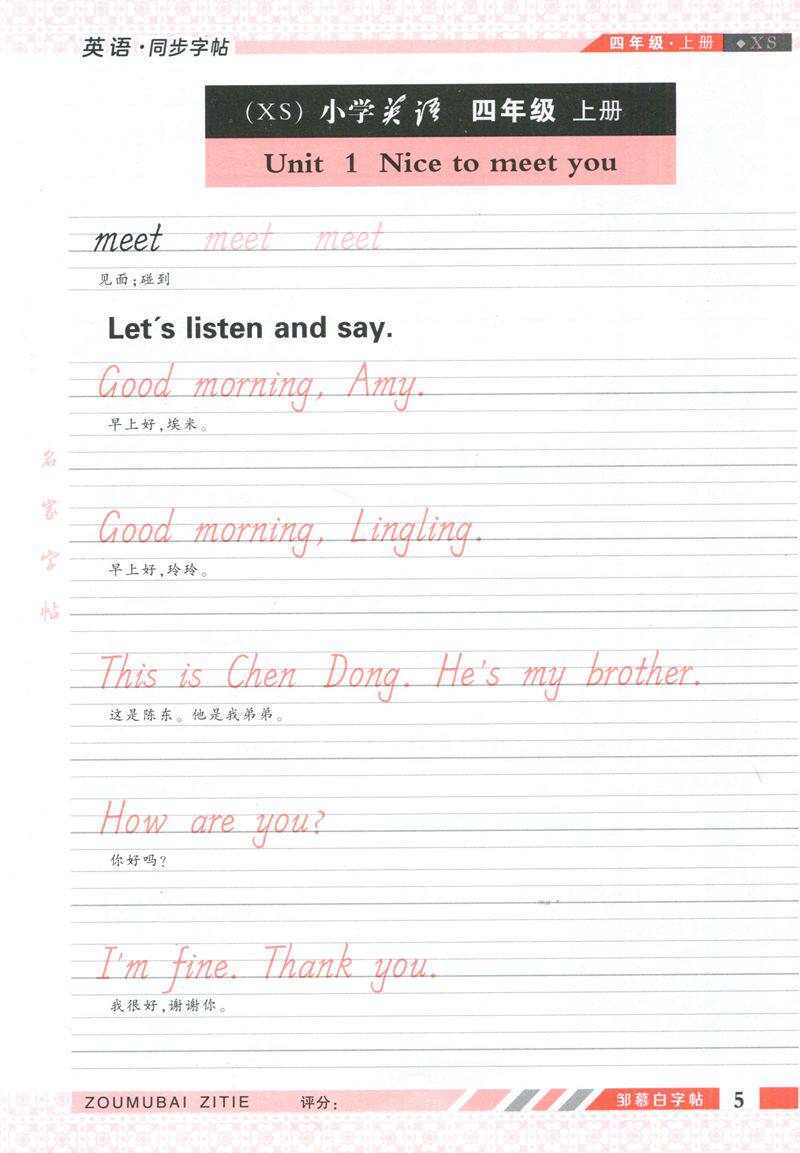 英语·同步字帖
四年级·上册 ◆XS
(XS) 小学英语 四年级 上册
Unit 1 Nice to meet you
meet meet meet
见面;碰到
Let's listen and say.
Good morning, Amy.
早上好,埃米。
Good morning, Lingling.
早上好,玲玲。
This is Chen Dong. He's my brother.
这是陈东。他是我弟弟。
How are you?
你好吗?
I'm fine. Thank you.
我很好,谢谢你。
名家字帖
ZOUMUBAI ZITIE 评分: 邹慕白字帖 5